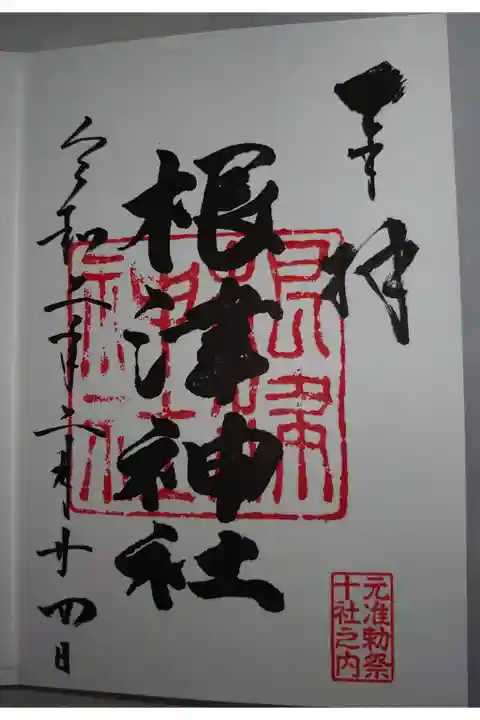 奉拝
根津神社
令和二年二月廿四日
根津神社
元准勅祭
十社之内